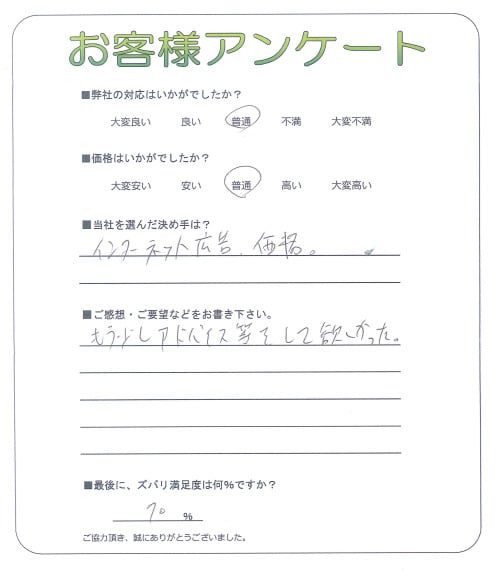 お客様アンケート
■弊社の対応はいかがでしたか？
大変良い 良い 普通 不満 大変不満
■価格はいかがでしたか？
大変安い 安い 普通 高い 大変高い
■当社を選んだ決め手は？
インターネット広告、価格。
■ご感想・ご要望などをお書き下さい。
もう少しアドバイス等をして欲しかった。
■最後に、ズバリ満足度は何％ですか？
70 ％
ご協力頂き、誠にありがとうございました。